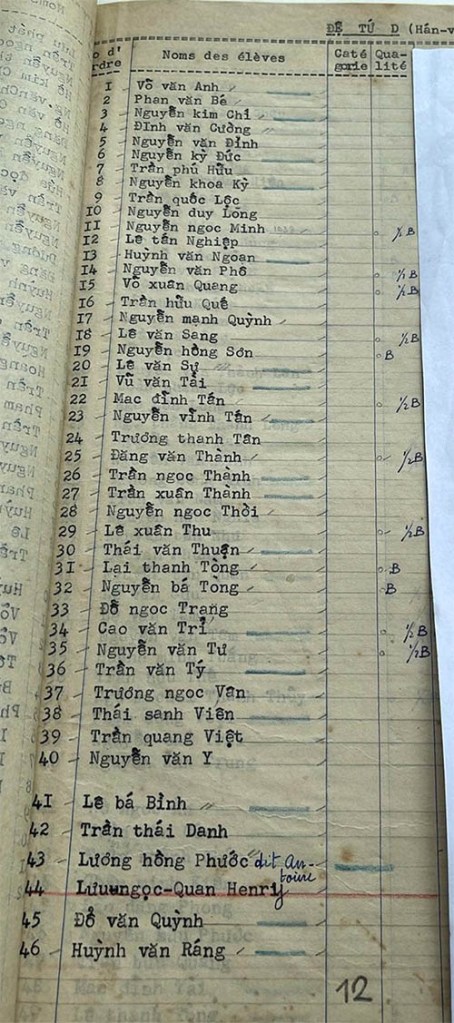 ĐỆ TỨ D (Hán-v
o d' Noms des élèves Caté Qua-
rdre gorie lité
1 - Võ văn Anh
2 - Phan văn Bé
3 - Nguyễn kim Chi
4 - Đinh văn Cường
5 - Nguyễn văn Đỉnh
6 - Nguyễn kỳ Đức
7 - Trần phú Hữu
8 - Nguyễn khoa Kỳ
9 - Trần quốc Lộc
10 - Nguyễn duy Long
11 - Nguyễn ngọc Minh ½ B
12 - Lê tấn Nghiệp
13 - Huỳnh văn Ngoạn
14 - Nguyễn văn Phô ½ B
15 - Võ xuân Quang ½ B
16 - Trần hữu Quế
17 - Nguyễn mạnh Quỳnh
18 - Lê văn Sang ½ B
19 - Nguyễn hồng Sơn B
20 - Lê văn Sự
21 - Vũ văn Tài
22 - Mạc đình Tấn ½ B
23 - Nguyễn vĩnh Tấn
24 - Trương thanh Tân
25 - Đăng văn Thành ½ B
26 - Trần ngọc Thành
27 - Trần xuân Thành
28 - Nguyễn ngọc Thời
29 - Lê xuân Thu ½ B
30 - Thái văn Thuận
31 - Lại thanh Tòng B
32 - Nguyễn bá Tòng B
33 - Đỗ ngọc Trang
34 - Cao văn Trí ½ B
35 - Nguyễn văn Tư ½ B
36 - Trần văn Tý
37 - Trương ngọc Vân
38 - Thái sanh Viên
39 - Trần quang Việt
40 - Nguyễn văn Y
41 - Lê bá Bỉnh
42 - Trần thái Danh
43 - Lương hồng Phước dit An-
toine
44 - Lưu ngọc-Quan Henry
45 - Đỗ văn Quỳnh
46 - Huỳnh văn Ráng
12